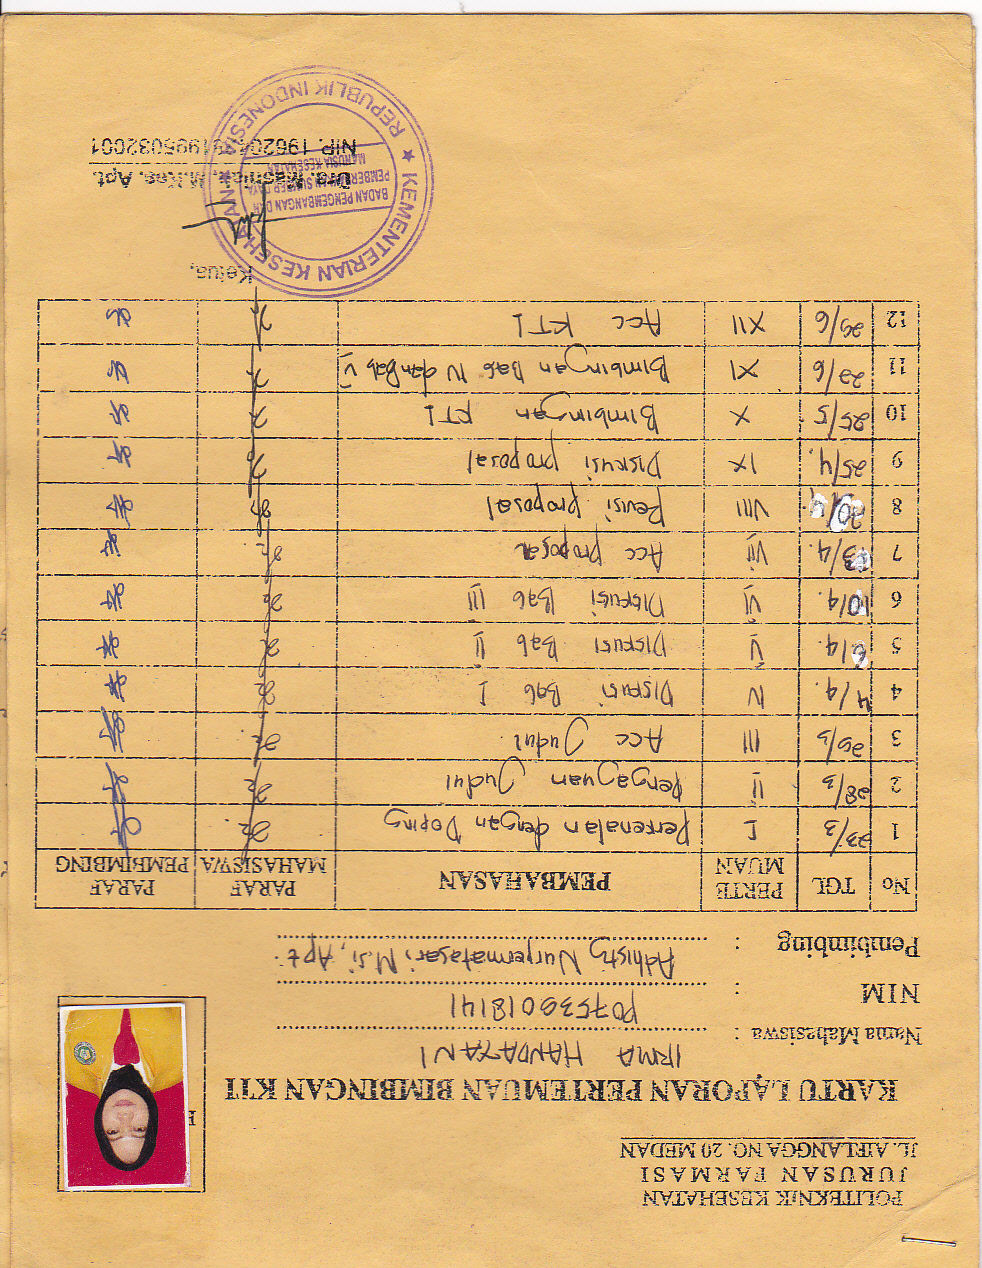 POLITEKNIK KESEHATAN
JURUSAN FARMASI
JL. AIRLANGGA NO. 20 MEDAN
KARTU LAPORAN PERTEMUAN BIMBINGAN KTI
Nama Mahasiswa : IRMA HANDAYANI
NIM : P07539018141
Pembimbing : Adhisty Nurpermatasari, M.Si, Apt.
No TGL PERTE MUAN PEMBAHASAN PARAF MAHASISWA PARAF PEMBIMBING
1 23/3 I Perkenalan dengan Doping
2 28/3 II Pengajuan Judul
3 III Acc Judul.
4 4/4. IV Diskusi Bab I
5 V Diskusi Bab II
6 10/4. VI Diskusi Bab III
7 VII Acc proposal
8 VIII Revisi proposal
9 25/4. IX Diskusi proposal
10 25/5 X Bimbingan KTI
11 XI Bimbingan Bab IV dan Bab V
12 XII Acc KTI
Ketua,
Dra. Masniah, M.Kes, Apt.
NIP. 196204281995032001
KEMENTERIAN KESEHATAN
REPUBLIK INDONESIA
BADAN PENGEMBANGAN DAN
PEMBERDAYAAN SUMBER DAYA
MANUSIA KESEHATAN